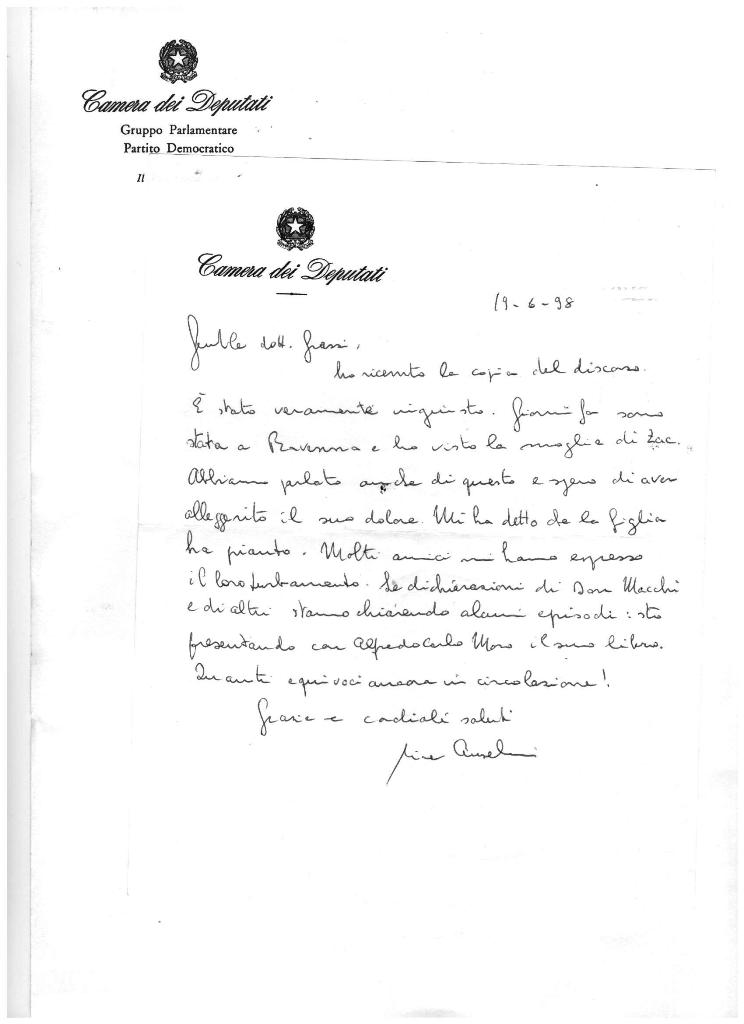 Camera dei Deputati
Gruppo Parlamentare
Partito Democratico
Il
Camera dei Deputati
19-6-98
Gentile dott. Grassi,
ho ricevuto la copia del discorso.
È stato veramente ingiusto. Giorni fa sono
stata a Ravenna e ho visto la moglie di Zac.
Abbiamo parlato anche di questo e spero di aver
alleggerito il suo dolore. Mi ha detto che la figlia
ha pianto. Molti amici mi hanno espresso
il loro turbamento. Le dichiarazioni di Don Macchi
e di altri stanno chiarendo alcuni episodi: sto
presentando con Alfredo Carlo Moro il suo libro.
Quanti equivoci ancora in circolazione!
Grazie e cordiali saluti
Tina Anselmi